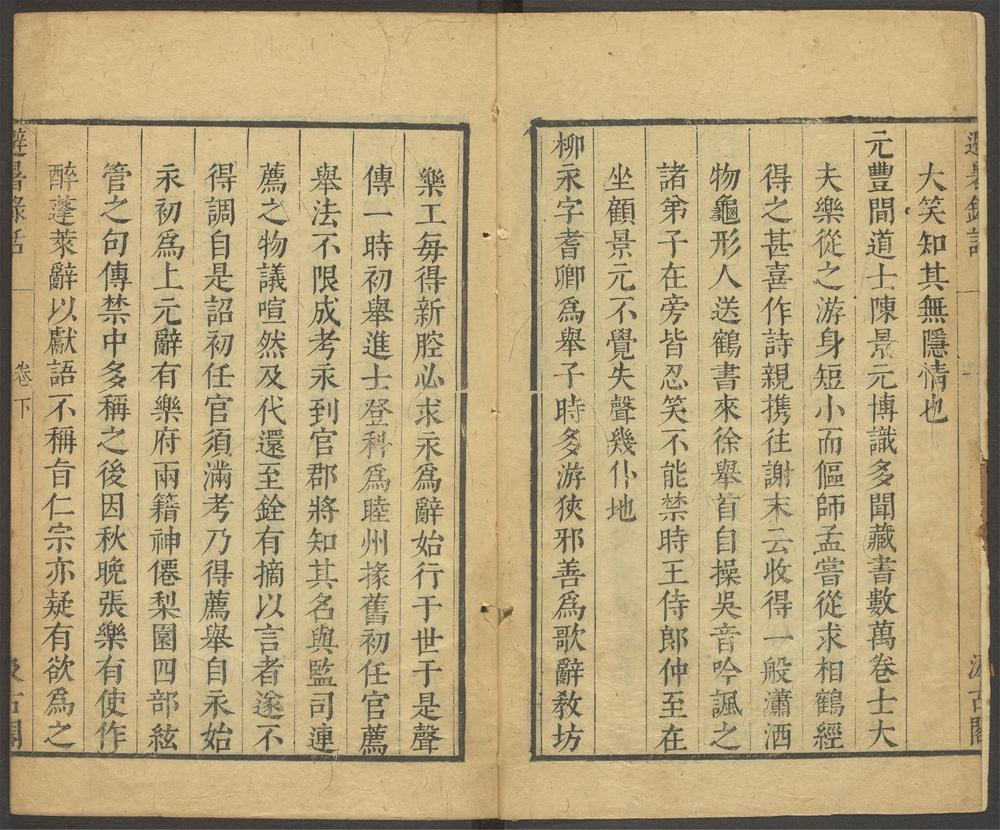 大笑知其無隱情也
元豐間道士陳景元博識多聞藏書數萬卷士大
夫樂從之游身短小而傴師孟嘗從求相鶴經
得之甚喜作詩親携往謝末云收得一般瀟洒
物龜形人送鶴書來徐舉首自操吳音吟諷之
諸弟子在旁皆忍笑不能禁時王侍郎仲至在
坐顧景元不覺失聲幾仆地
柳永字耆卿爲舉子時多游狹邪善爲歌辭教坊
樂工每得新腔必求永爲辭始行于世于是聲
傳一時初舉進士登科爲睦州掾舊初任官薦
舉法不限成考永到官郡將知其名與監司連
薦之物議喧然及代還至銓有摘以言者遂不
得調自是詔初任官須滿考乃得薦舉自永始
永初爲上元辭有樂府兩籍神僊梨園四部絃
管之句傳禁中多稱之後因秋晚張樂有使作
醉蓬萊辭以獻語不稱旨仁宗亦疑有欲爲之
避暑錄話
卷下